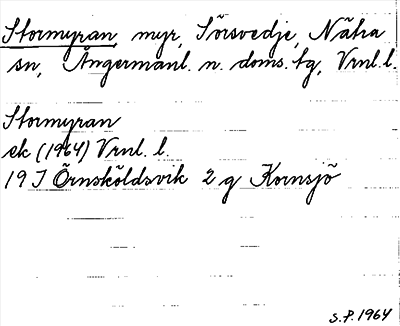 Stormyran, myr, Sörsvedje, Nätra
sn, Ångermanl. n. doms. tg, Vrnl. l.
Stormyran
ek (1964) Vrnl. l.
19 J Örnsköldsvik 2 g Kornsjö
S.P. 1964